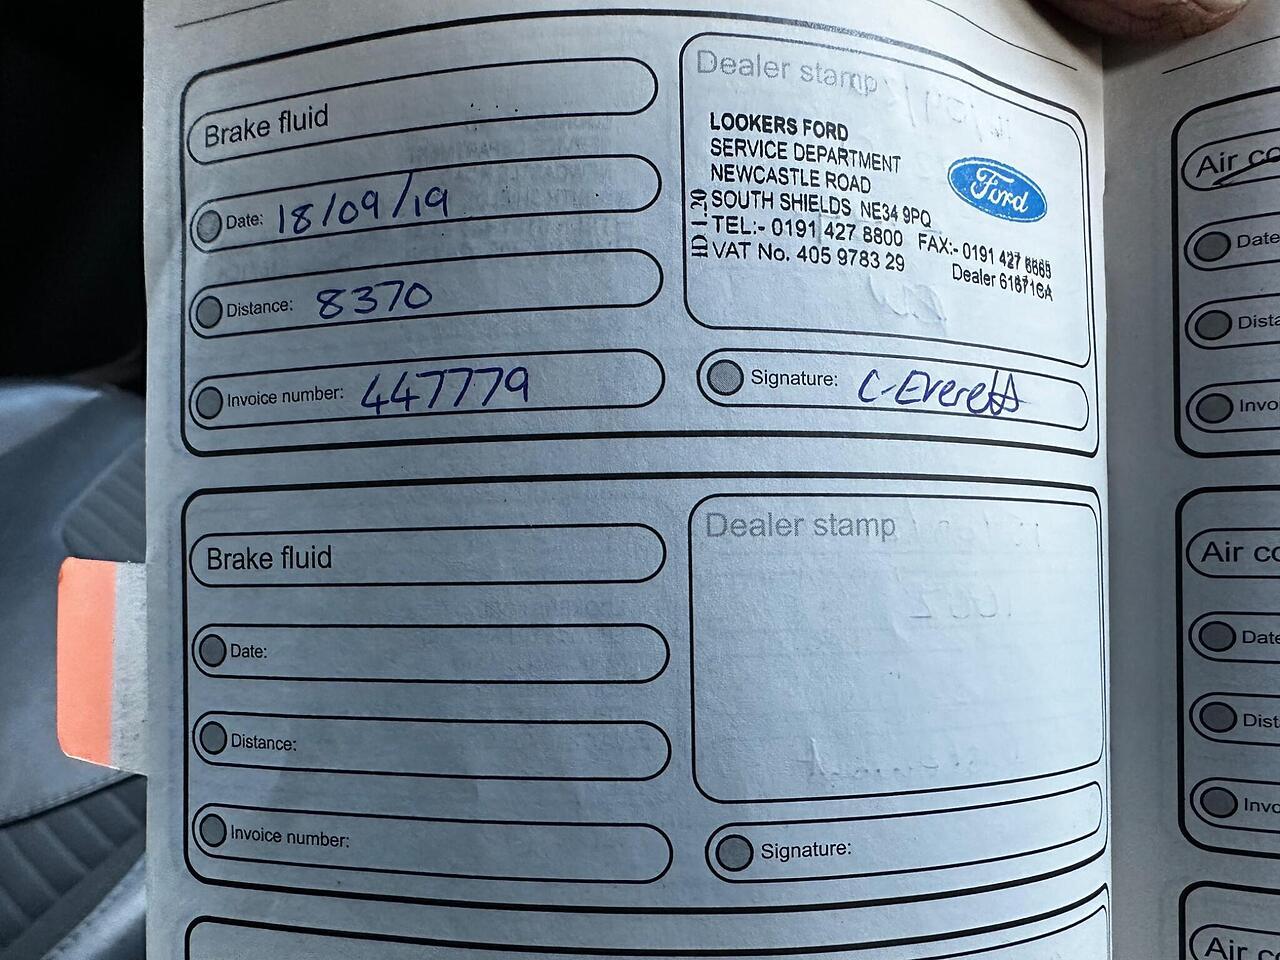 Brake fluid
Date: 18/09/19
Distance: 8370
Invoice number: 447779
Dealer stamp
LOOKERS FORD
SERVICE DEPARTMENT
NEWCASTLE ROAD
SOUTH SHIELDS NE34 9PQ
TEL:- 0191 427 8800 FAX:- 0191 427
VAT No. 405 9783 29
Dealer
Ford
Signature: C-Everett
Brake fluid
Date:
Distance:
Invoice number:
Dealer stamp
Signature:
Air co
Date
Dista
Invo
Air co
Date
Dist
Invo
Air c